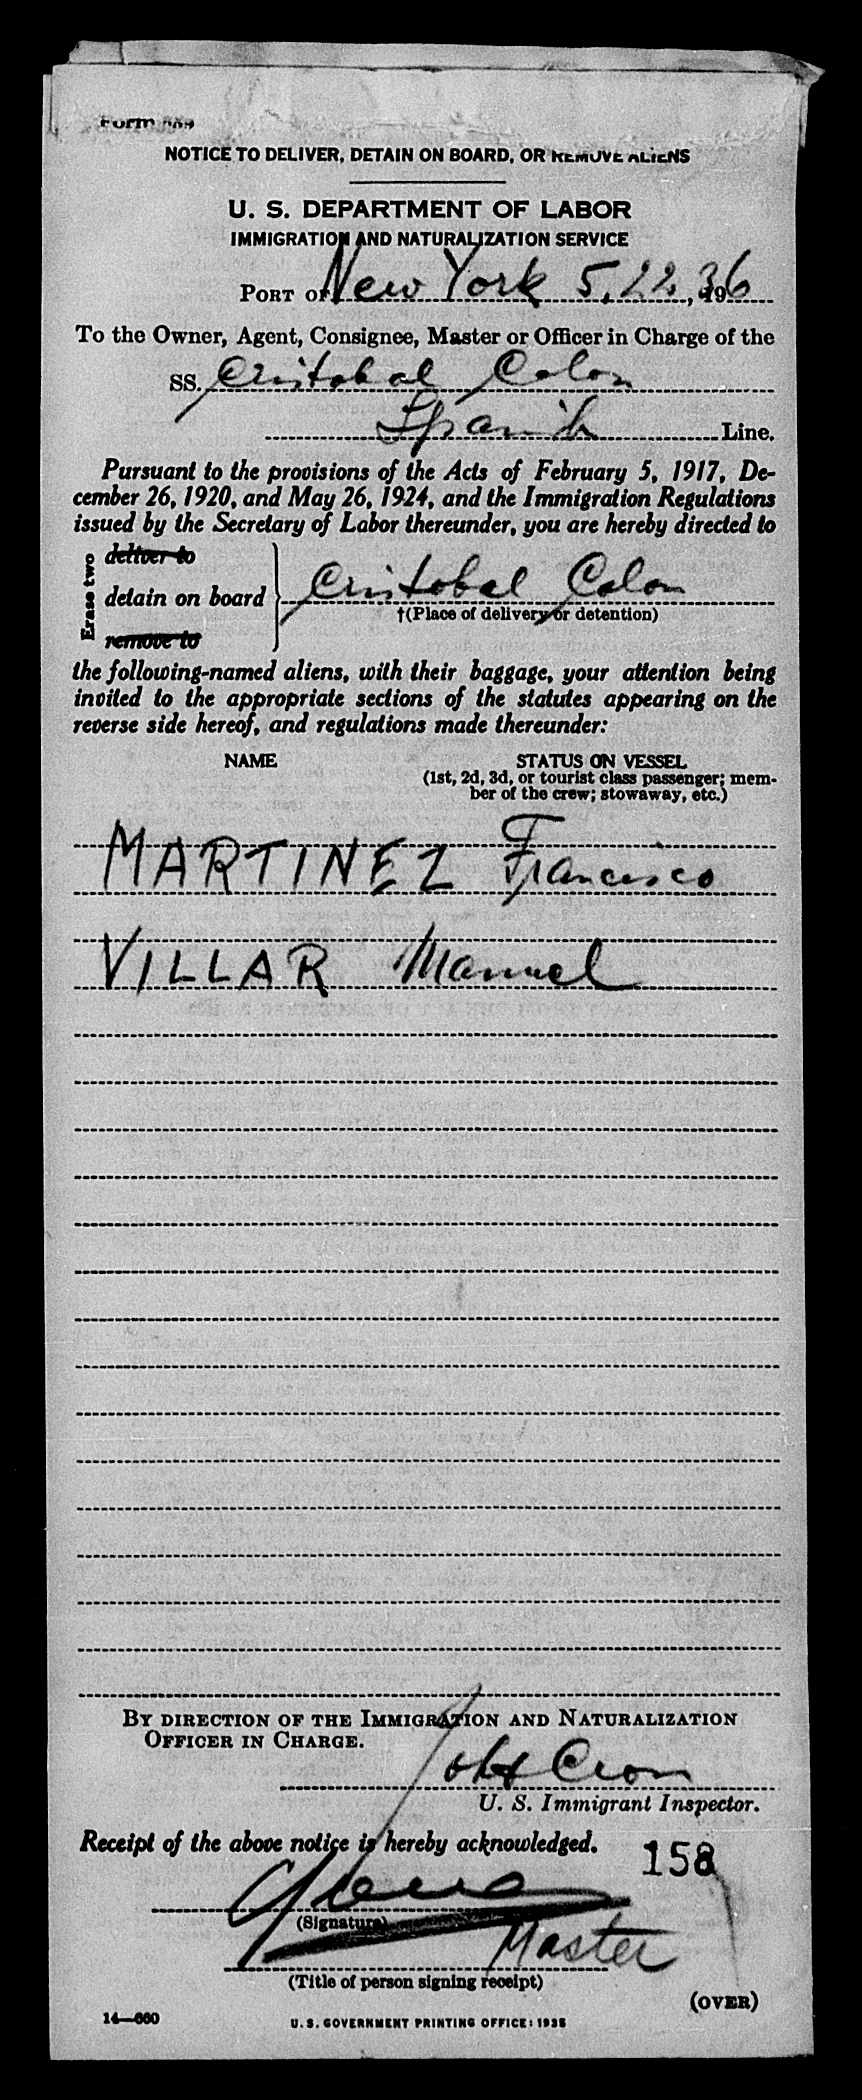 Form 689
NOTICE TO DELIVER, DETAIN ON BOARD, OR REMOVE ALIENS
U. S. DEPARTMENT OF LABOR
IMMIGRATION AND NATURALIZATION SERVICE
PORT OF New York 5.22, 1936
To the Owner, Agent, Consignee, Master or Officer in Charge of the
SS. Cristobal Colon
Spanish Line.
Pursuant to the provisions of the Acts of February 5, 1917, De-
cember 26, 1920, and May 26, 1924, and the Immigration Regulations
issued by the Secretary of Labor thereunder, you are hereby directed to
Erase two
deliver to
detain on board Cristobal Colon
†(Place of delivery or detention)
remove to
the following-named aliens, with their baggage, your attention being
invited to the appropriate sections of the statutes appearing on the
reverse side hereof, and regulations made thereunder:
NAME STATUS ON VESSEL
(1st, 2d, 3d, or tourist class passenger; mem-
ber of the crew; stowaway, etc.)
MARTINEZ Francisco
VILLAR Manuel
BY DIRECTION OF THE IMMIGRATION AND NATURALIZATION
OFFICER IN CHARGE.
U. S. Immigrant Inspector.
Receipt of the above notice is hereby acknowledged.
158
(Signature)
Master
(Title of person signing receipt)
(OVER)
14—660
U. S. GOVERNMENT PRINTING OFFICE: 1935